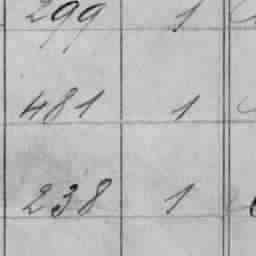 299 1
481 1
238 1